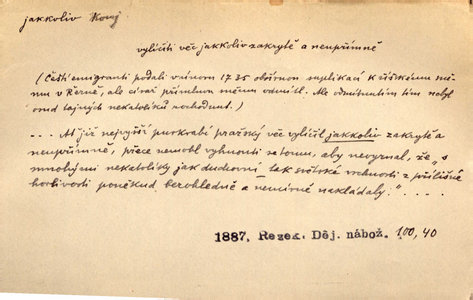 jakkoliv Konj
vylíčiti věc jakkoliv zakrytě a neupřímně
(Čeští emigranti podali v únoru 1735 obšírnou suplikaci k říšskému sně-
mu v Řezně, ale císař přímluvu sněmu odmítl. Ale odmítnutím tím nebyl
osud tajných nekatolíků rozhodnut.)
.... Ať již nejvyšší purkrabí pražský věc vylíčil jakkoliv zakrytě a
neupřímně, přece nemohl vyhnouti se tomu, aby nevyznal, že „s
mnohými nekatolíky jak duchovní tak světské vrchnosti z přílišné
horlivosti poněkud bezohledně a nemírně nakládaly." .....
1887, Rezek. Děj. nábož. 100, 40